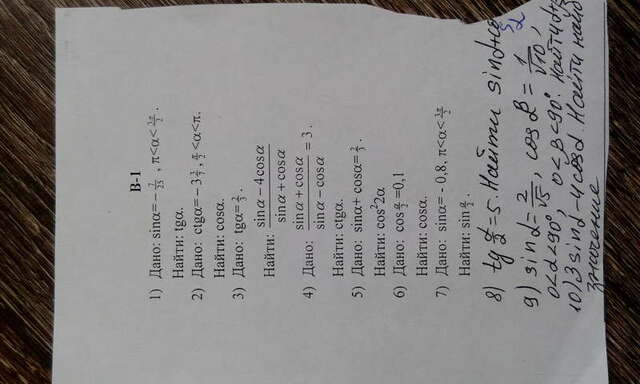 В-1
1) Дано: sinα= - 7/25 , π<α< 3π/2 .
Найти: tgα.
2) Дано: ctgα= - 3 3/7 , π/2 <α<π.
Найти: cosα.
3) Дано: tgα= 2/3 .
Найти: (sinα − 4cosα)/(sinα + cosα)
4) Дано: (sinα + cosα)/(sinα − cosα) = 3.
Найти: ctgα.
5) Дано: sinα+ cosα=
Найти: cos²2α
6) Дано: cos α/2 =0,1
Найти: cosα.
7) Дано: sinα= - 0,8, π<α< 3π/2
Найти: sin α/2 .
8) tg α/2 =5. Найти sinα+
9) sinα= 2/√5, cosβ= 1/√10,
0<α<90°, 0<β<90°. Найти α+
10) 3sinα-4cosα. Найти
значение